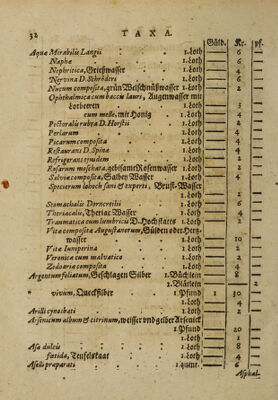 32 TAXA.
Güld. Kr. ps.
Aquæ Mirabilis Langii 1.Loth 6
Naphæ 1.Loth 6
Nephritica, Grießwasser 1.Loth 4
Nervina D. Schröderi 1.Loth 6
Nucum composita, grün Welschnußwasser 1.Loth 2
Ophthalmica cum baccis lauri, Augenwasser mit
Lorbeeren 1.Loth 3
cum melle, mit Honig 1.Loth 4
Pectoralis rubra D. Horstii 1.Loth 2
Perlarum 1.Loth 4
Picarum composita 1.Loth 4
Restaurans D. Spina 1.Loth 4
Refrigerans ejusdem 1.Loth 2
Rosarum moschata, gebisamt Rosenwasser 1.Loth 4
Salviæ composita, Salbey Wasser 1.Loth 4
Specierum lohoch sani & experti, Brust-Wasser
1.Loth 2
Stomachalis Dorncreilii 1.Loth 6
Theriacalis, Theriac Wasser 1.Loth 4
Traumatica cum lumbricis D. Hochstatts 1.Loth 2
Vitæ composita Augustanorum, Gülden oder Hertz-
wasser 1.Loth 10
Vitæ Iuniperina 1.Loth 2
Veronicæ cum malvatico 1.Loth 2
Zedoariæ composita 1.Loth 4
Argentum foliatum, Geschlagen Silber 1.Büchlein
1.Blätlein 2
* vivum, Quecksilber 1.Pfund 1 30
1.Loth 4
Arilli cynosbati 1.Loth 2
Arsenicum album & citrinum, weisser und gelber Arsenick
1.Pfund 20
1.Loth 1
Asa dulcis 1.Loth 8
fœtida, Teufelskaat 1.Loth 4
Aselli præparati 1.quint. 6
Asphal.